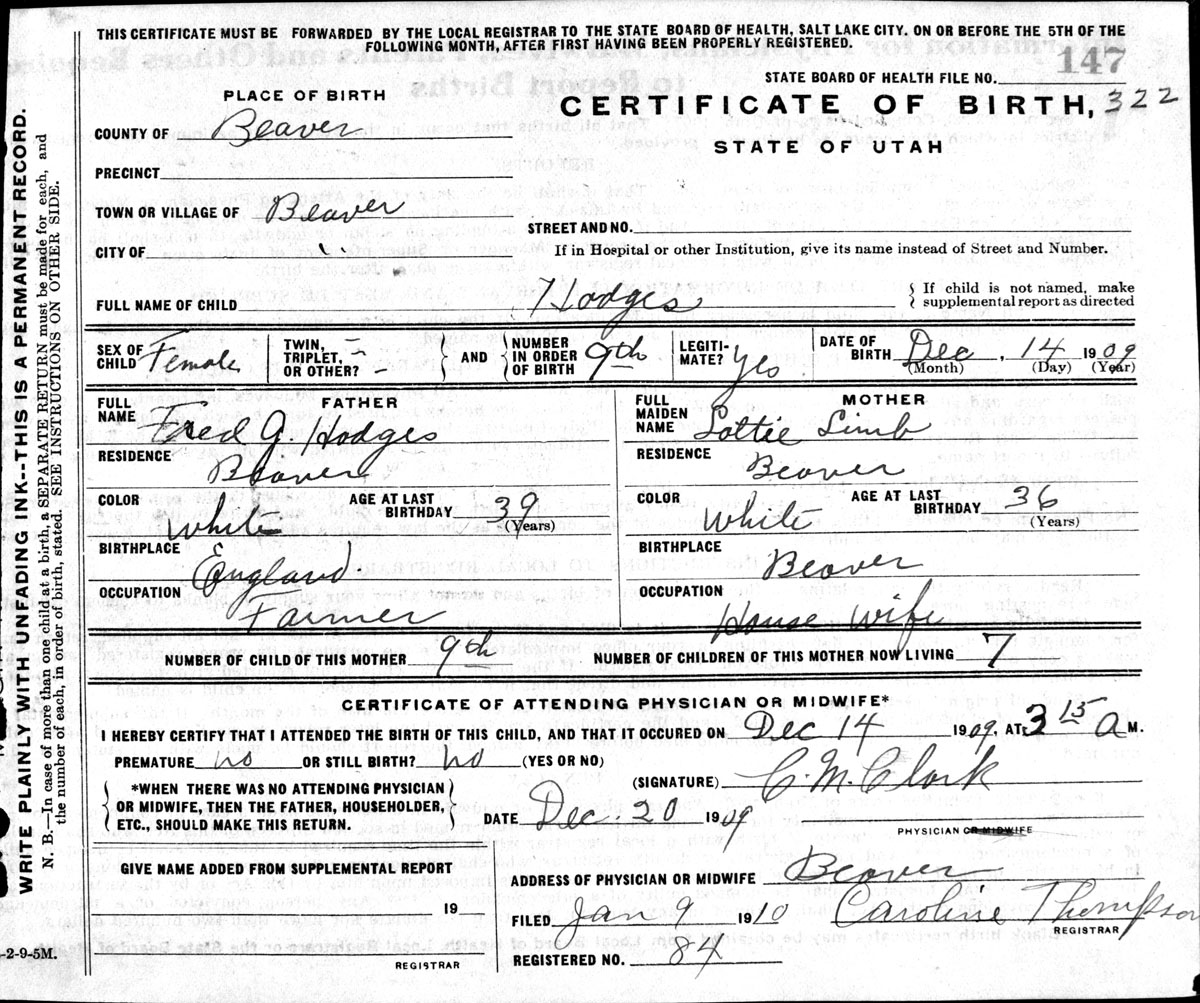 THIS CERTIFICATE MUST BE FORWARDED BY THE LOCAL REGISTRAR TO THE STATE BOARD OF HEALTH, SALT LAKE CITY. ON OR BEFORE THE 5TH OF THE
FOLLOWING MONTH, AFTER FIRST HAVING BEEN PROPERLY REGISTERED.
147
STATE BOARD OF HEALTH FILE NO.
PLACE OF BIRTH
CERTIFICATE OF BIRTH, 322
COUNTY OF Beaver
STATE OF UTAH
PRECINCT
TOWN OR VILLAGE OF Beaver
STREET AND NO.
CITY OF
If in Hospital or other Institution, give its name instead of Street and Number.
FULL NAME OF CHILD Hodges { If child is not named, make
supplemental report as directed
SEX OF CHILD Female TWIN, TRIPLET, OR OTHER? } AND { NUMBER IN ORDER OF BIRTH 9th LEGITI-MATE? Yes DATE OF BIRTH Dec, 14 1909
(Month) (Day) (Year)
FATHER
FULL NAME Fred G. Hodges
RESIDENCE Beaver
COLOR White AGE AT LAST BIRTHDAY 39 (Years)
BIRTHPLACE England
OCCUPATION Farmer
MOTHER
FULL MAIDEN NAME Lottie Limb
RESIDENCE Beaver
COLOR White AGE AT LAST BIRTHDAY 36 (Years)
BIRTHPLACE Beaver
OCCUPATION House Wife
NUMBER OF CHILD OF THIS MOTHER 9th NUMBER OF CHILDREN OF THIS MOTHER NOW LIVING 7
CERTIFICATE OF ATTENDING PHYSICIAN OR MIDWIFE*
I HEREBY CERTIFY THAT I ATTENDED THE BIRTH OF THIS CHILD, AND THAT IT OCCURED ON Dec 14 1909, AT 3 15 A M.
PREMATURE no OR STILL BIRTH? no (YES OR NO)
(SIGNATURE) C. M. Clark
{ *WHEN THERE WAS NO ATTENDING PHYSICIAN
OR MIDWIFE, THEN THE FATHER, HOUSEHOLDER,
ETC., SHOULD MAKE THIS RETURN. }
DATE Dec. 20 1909
PHYSICIAN OR MIDWIFE
GIVE NAME ADDED FROM SUPPLEMENTAL REPORT
19
REGISTRAR
ADDRESS OF PHYSICIAN OR MIDWIFE Beaver
FILED Jan 9 1910 Caroline Thompson
REGISTRAR
REGISTERED NO. 84
WRITE PLAINLY WITH UNFADING INK--THIS IS A PERMANENT RECORD.
N. B.—In case of more than one child at a birth, a SEPARATE RETURN must be made for each, and
the number of each, in order of birth, stated. SEE INSTRUCTIONS ON OTHER SIDE.
-2-9-5M.